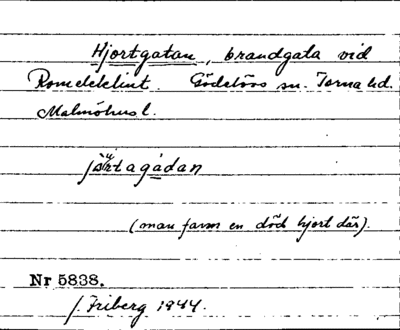 Hjortgatan, brandgata vid
Romeleklint. Gödelövs sn. Torna hd.
Malmöhus l.
jörtagadan
(man fann en död hjort där).
Nr 5838.
J. Friberg 1944.